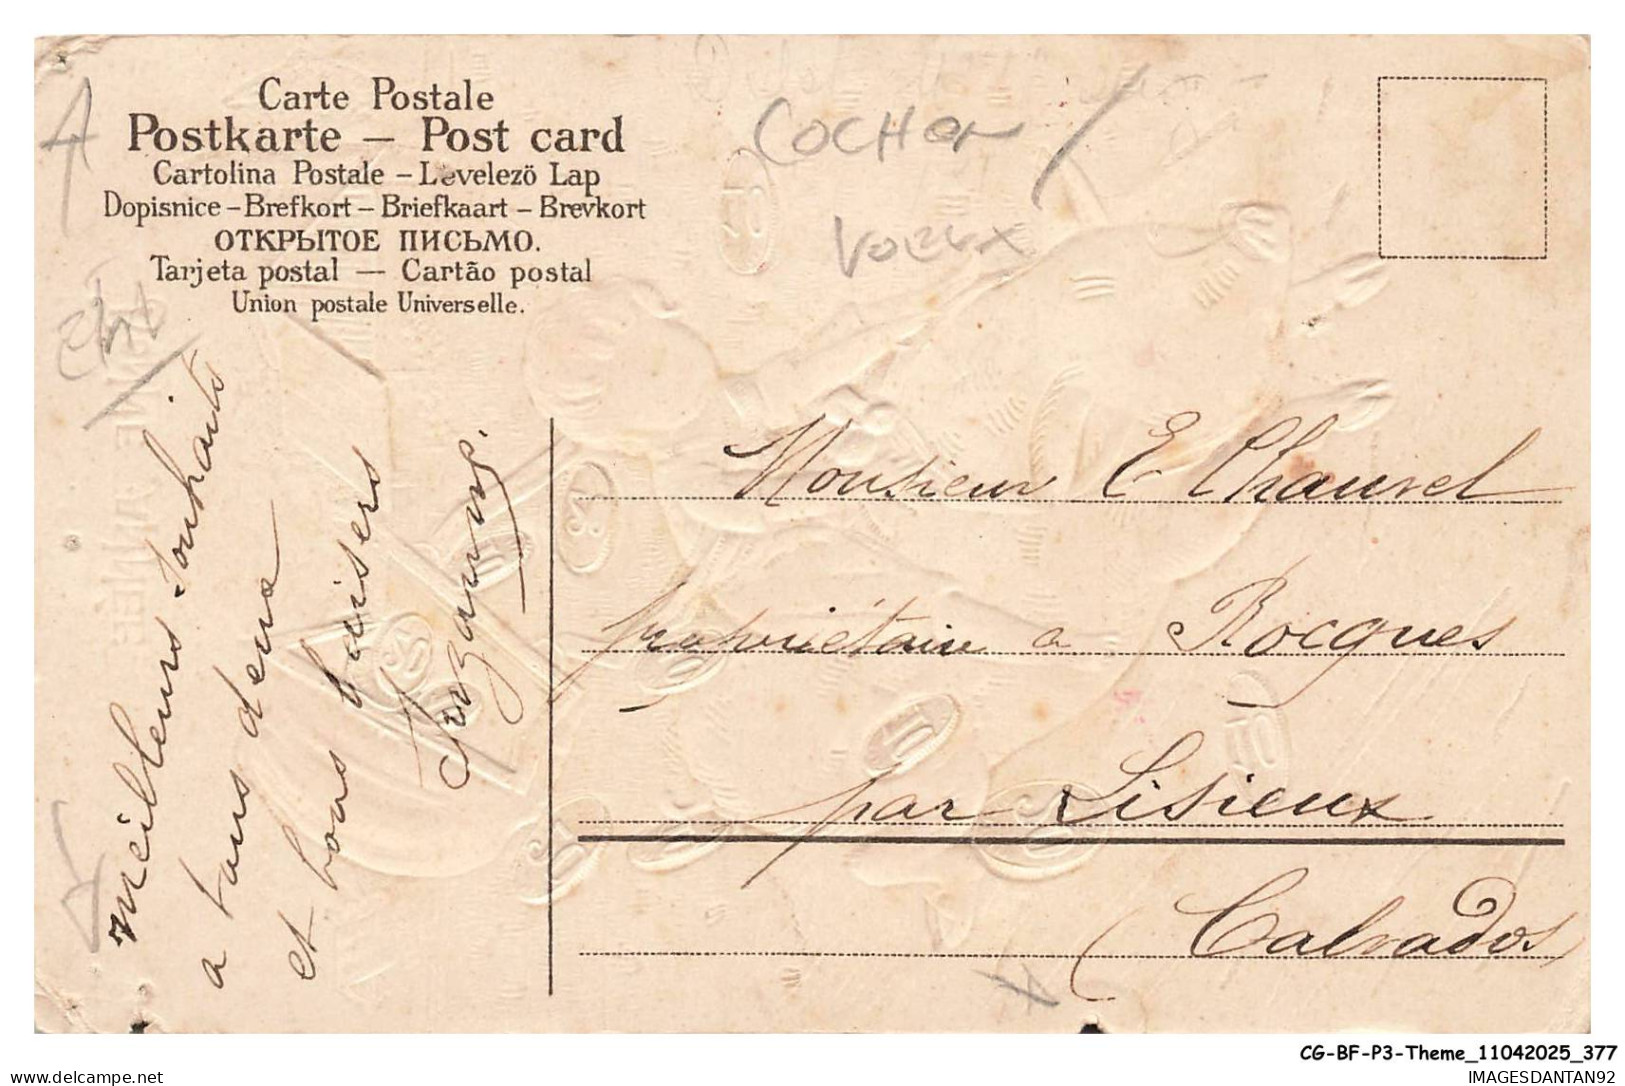 Carte Postale
Postkarte – Post card
Cartolina Postale – Levelezö Lap
Dopisnice – Brefkort – Briefkaart – Brevkort
ОТКРЫТОЕ ПИСЬМО.
Tarjeta postal — Cartão postal
Union postale Universelle.
COCHON
VOEUX
Meilleurs Souhaits
a tous deux
et bons baisers
Suzanne.
Monsieur E Chauvel
propriétaire a Rocques
par Lisieux
(Calvados
CG-BF-P3-Theme_11042025_377
IMAGESDANTAN92